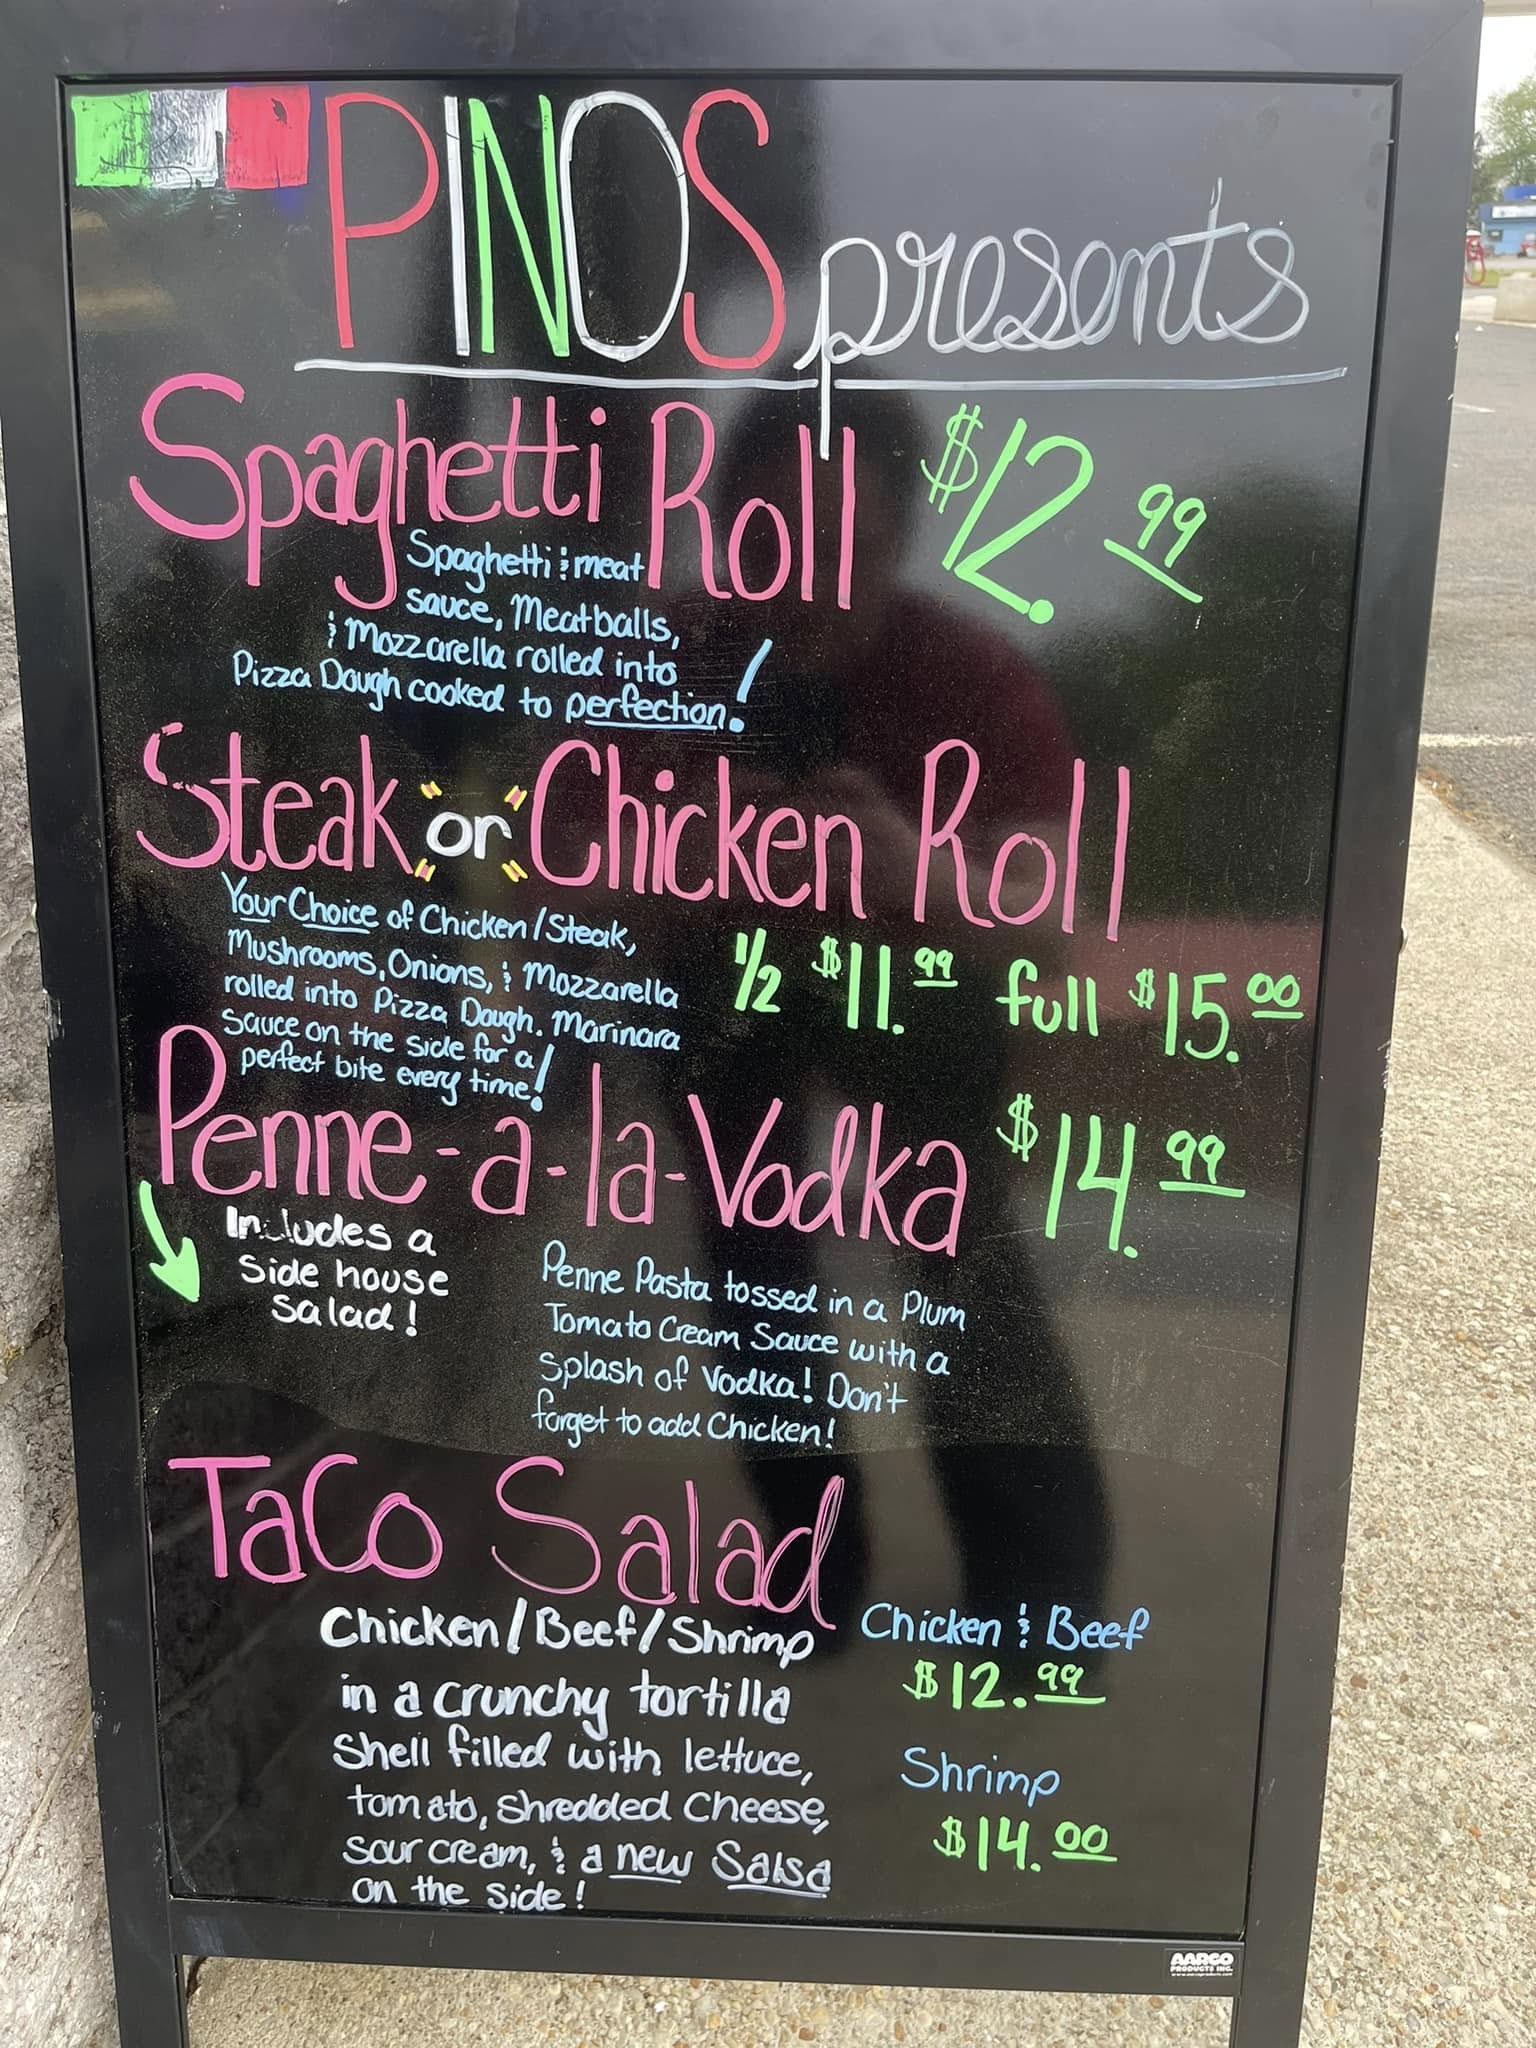 PINOS presents
Spaghetti Roll $12.99
Spaghetti & meat
sauce, Meatballs,
& Mozzarella rolled into
Pizza Dough cooked to perfection!
Steak or Chicken Roll
Your Choice of Chicken/Steak,
Mushrooms, Onions, & Mozzarella
rolled into Pizza Dough. Marinara
sauce on the side for a
perfect bite every time!
1/2 $11.99 full $15.00
Penne-a-la-Vodka $14.99
Includes a
side house
salad!
Penne Pasta tossed in a Plum
Tomato Cream Sauce with a
Splash of Vodka! Don't
forget to add Chicken!
Taco Salad
Chicken/Beef/Shrimp
in a crunchy tortilla
Shell filled with lettuce,
tomato, Shredded Cheese,
sour cream, & a new Salsa
on the side!
Chicken & Beef
$12.99
Shrimp
$14.00
AARCO
PRODUCTS INC.
www.aarcoproducts.com